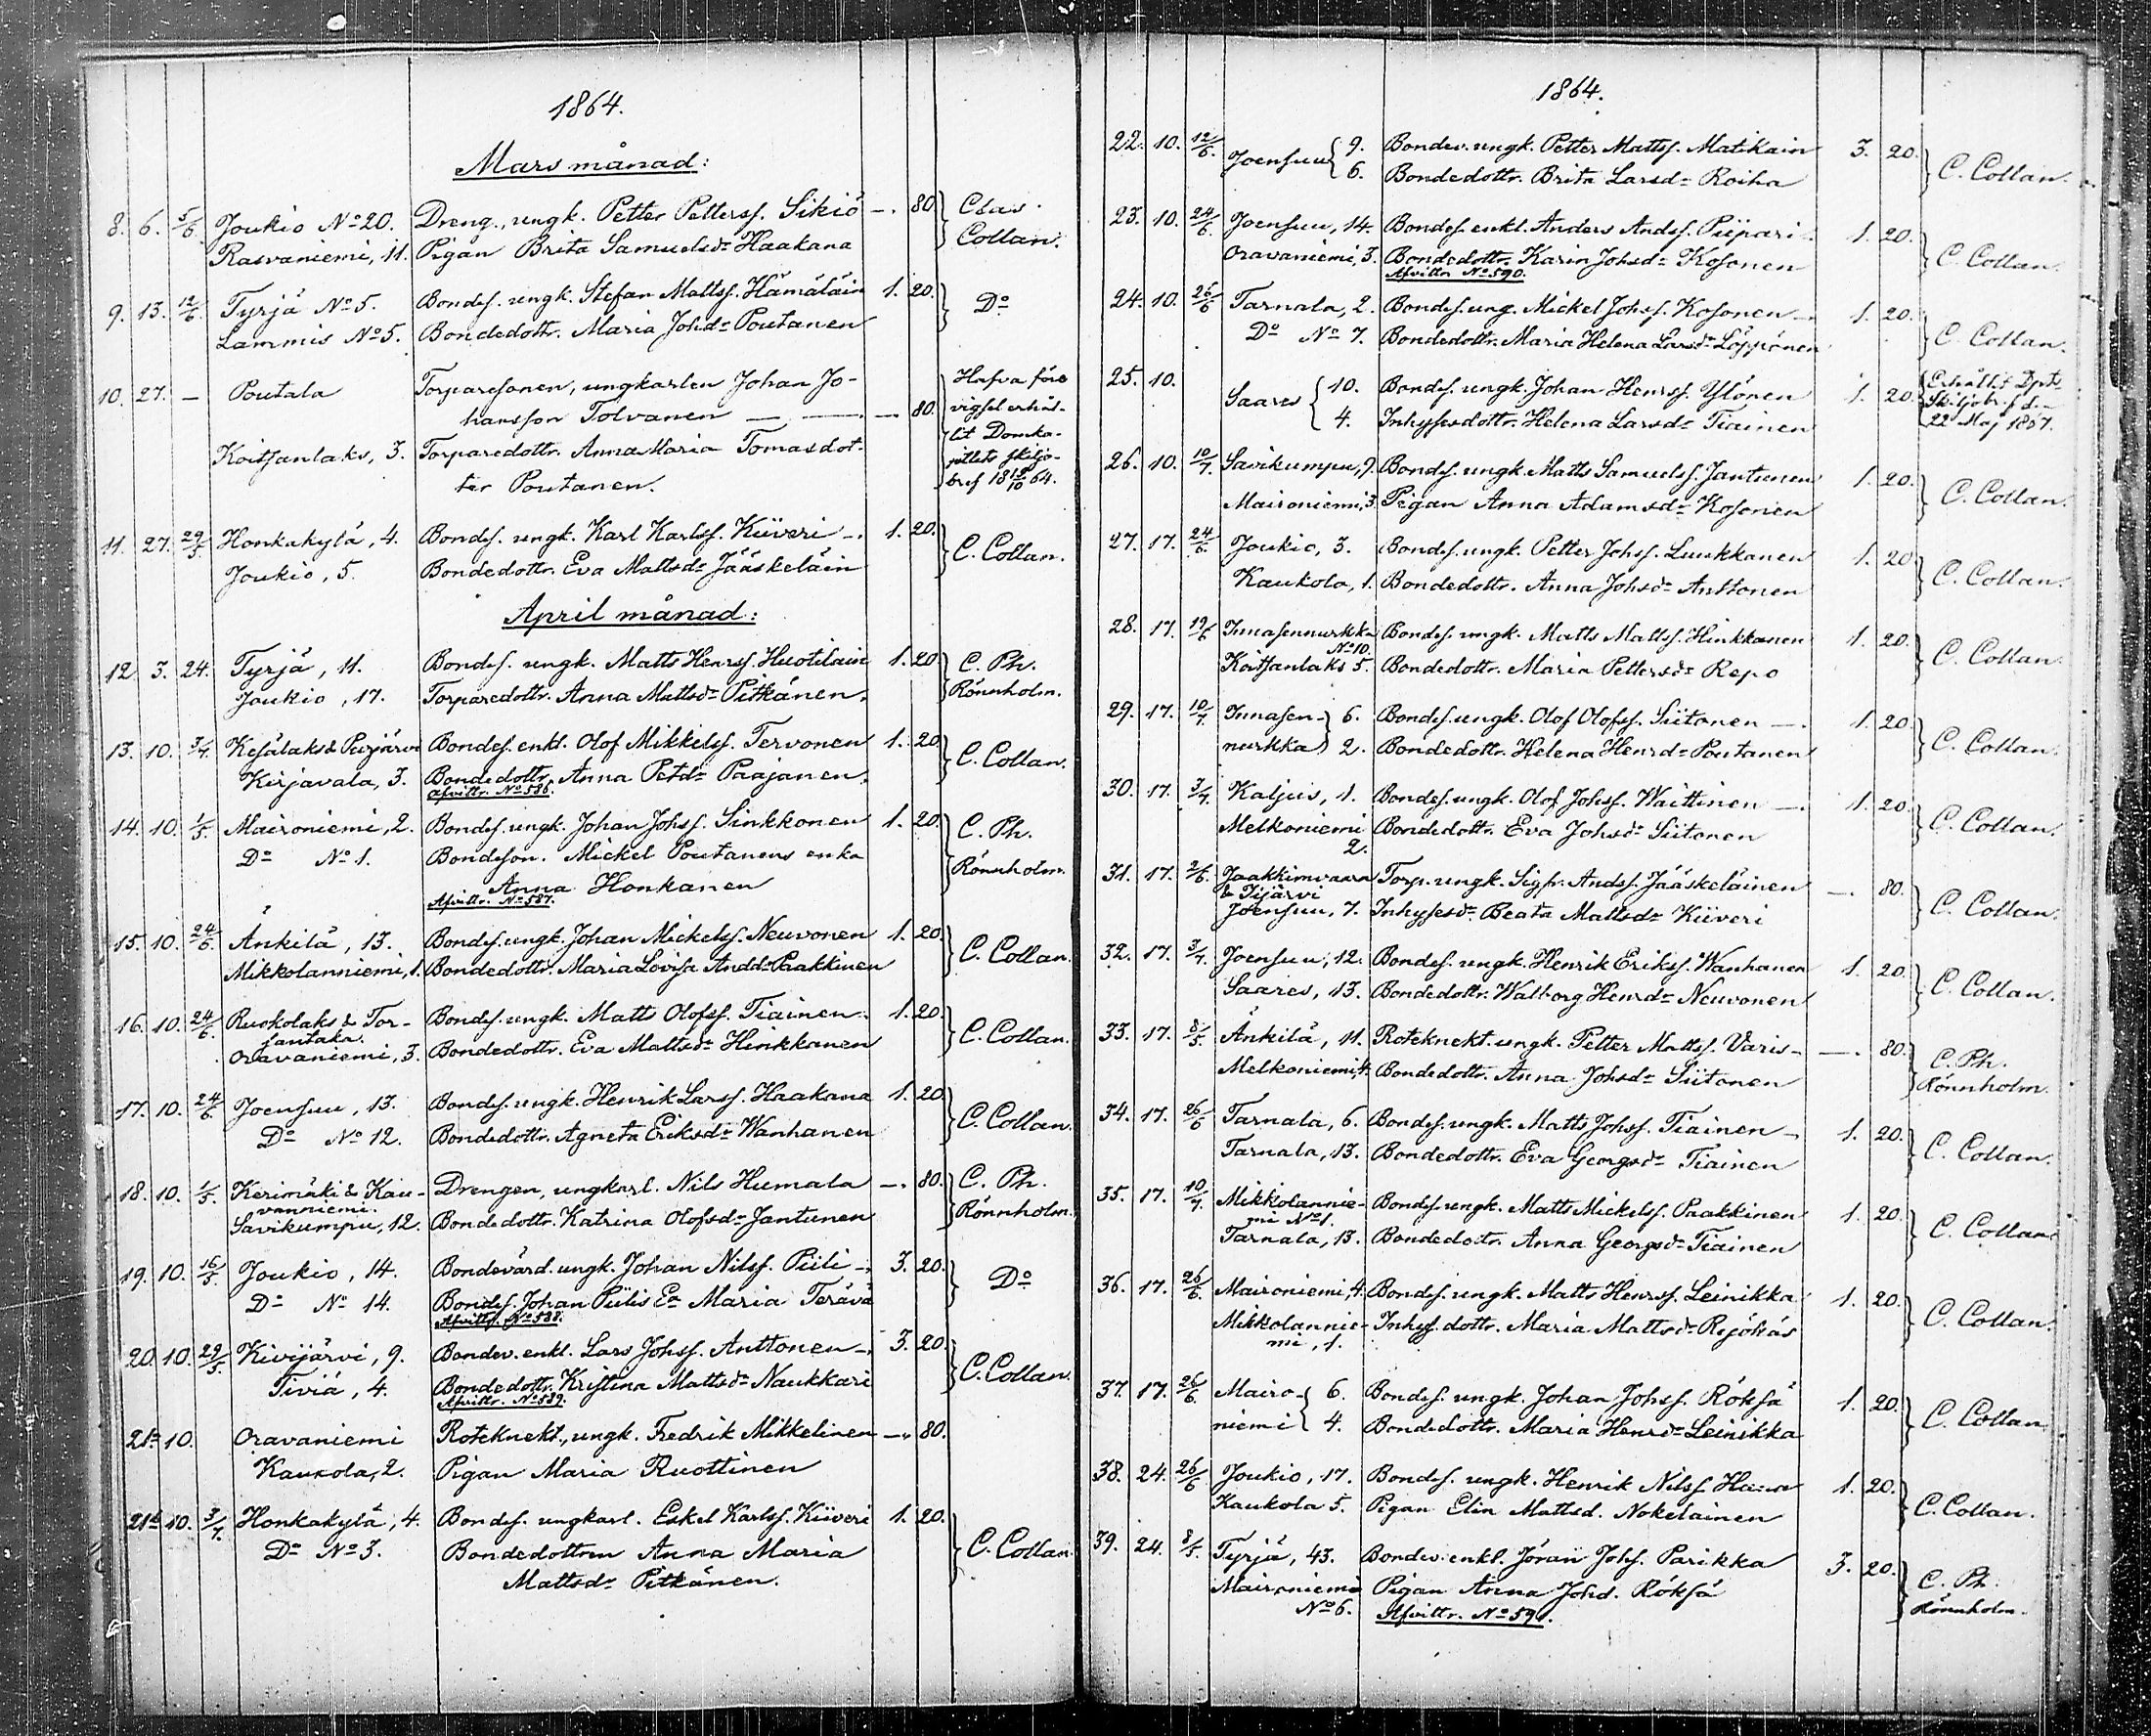 1864.
Mars månad:
8. 6. 5/6. Joukio No 20. Dreng., ungk. Petter Pettersf. Sikiö —. 80. Clas
Rasvaniemi, 11. Pigan Brita Samuelsdr Haakana Collan.
9. 13. 12/6. Tyrjä No 5. Bondes. ungk. Stefan Mattsf. Hämäläin 1. 20. Do
Lammis No 5. Bondedottr. Maria Johdr Poutanen
10. 27. — Poutala Torparesonen, ungkarlen Johan Jo- Hafva före
hansson Tolvanen — — — 80. vigsel erhål-
lit Domka-
Koitsanlaks, 3. Torparedottr. Anna Maria Tomasdot- pitlets skiljo-
ter Poutanen. bref 18 64.
11. 27. 29/5 Honkakylä, 4. Bondes. ungk. Karl Karlsf. Kiiveri —. 1. 20. C. Collan.
Joukio, 5. Bondedottr. Eva Mattsdr Jääskeläin
April månad:
12. 3. 24. Tyrjä, 11. Bondes. ungk. Matts Henrsf. Huotilain 1. 20. C. Ph.
Joukio, 17. Torparedottr. Anna Mattsdr Pitkänen. Rönnholm.
13. 10. 3/7. Kesälaks & Purjärvi Bondes. enkl. Olof Mikkelsf. Tervonen 1. 20. C. Collan.
Kirjavala, 3. Bondedottr. Anna Petdr Paajanen.
Afvittr. No 586.
14. 10. 1/5. Maironiemi, 2. Bondes. ungk. Johan Johsf. Sinkkonen 1. 20. C. Ph.
Do No 1. Bondeson. Mickel Poutanens enka Rönnholm.
Anna Honkanen
Afvittr. No 587.
15. 10. 24/6. Änkilä, 13. Bondes. ungk. Johan Mickelsf. Neuvonen 1. 20. C. Collan.
Mikkolanniemi, 1. Bondedottr. Maria Lovisa Anddr Paakkinen
16. 10. 24/6. Ruokolaks & Tor- Bondes. ungk. Matts Olofsf. Tiainen. 1. 20. C. Collan.
santaka.
Oravaniemi, 3. Bondedottr. Eva Mattsdr Hinkkanen
17. 10. 24/6. Joensuu, 13. Bondes. ungk. Henrik Larsf. Haakana 1. 20. C. Collan.
Do No 12. Bondedottr. Agneta Eriksdr Wanhanen
18. 10. 1/5. Kerimäki & Kau- Drengen, ungkarl. Nils Humala —. 80. C. Ph.
vanniemi.
Savikumpu, 12. Bondedottr. Katrina Olofsdr Jantunen Rönnholm.
19. 10. 16/5. Joukio, 14. Bondevärd. ungk. Johan Nilsf. Piili —. 3. 20. Do
Do No 14. Bondes. Johan Piilis Ea Maria Terävä
Afvittr. No 588.
20. 10. 29/5. Kivijärvi, 9. Bondev. enkl. Lars Johsf. Anttonen —. 3. 20. C. Collan.
Tiviä, 4. Bondedottr. Kristina Mattsdr Naukkari
Afvittr. No 589.
21a 10. Oravaniemi Roteknekt., ungk. Fredrik Mikkelinen —. 80.
Kaukola, 2. Pigan Maria Ruottinen
21b 10. 3/7. Honkakylä, 4. Bondes. ungkarl. Eskel Karlsf. Kiiveri 1. 20. C. Collan.
Do No 3. Bondedottren Anna Maria
Mattsdr Pitkänen.
1864.
22. 10. 12/6. Joensuu { 9. Bondev. ungk. Petter Mattsf. Matikain 3. 20. C. Collan.
6. Bondedottr. Brita Larsdr Roiha
23. 10. 24/6. Joensuu, 14. Bondes. enkl. Anders Andsf. Piipari. 1. 20. C. Collan.
Oravaniemi, 3. Bondedottr. Karin Johsdr Kosonen
Afvittr No 590.
24. 10. 26/6 Tarnala, 2. Bondes. ung. Mickel Johsf. Kosonen —. 1. 20. C. Collan.
Do No 7. Bondedottr. Maria Helena Larsdr Löppönen
25. 10. Saares { 10. Bondes. ungk. Johan Henrsf. Ylönen 1. 20. Erhållit Dpts
4. Inhysesdottr. Helena Larsdr Tiainen Skiljobr. f d.
22 Maj 1867.
26. 10. 10/7. Savikumpu, 9. Bondes. ungk. Matts Samuelsf. Jantunen 1. 20. C. Collan.
Maironiemi, 3. Pigan Anna Adamsdr Kosonen
27. 17. 24/6. Joukio, 3. Bondes. ungk. Petter Johsf. Luukkanen 1. 20. C. Collan.
Kaukola, 1. Bondedottr. Anna Johsdr Anttonen
28. 17. 19/6 Innasennurkka Bondes. ungk. Matts Mattsf. Hinkkanen 1. 20. C. Collan.
No 10.
Koitsanlaks 5. Bondedottr. Maria Pettersdr Repo
29. 17. 10/7 Innasen- } 6. Bondes. ungk. Olof Olofsf. Siitonen —. 1. 20. C. Collan.
nurkka 2. Bondedottr. Helena Henrdr Poutanen
30. 17. 3/7. Kaljus, 1. Bondes. ungk. Olof Johsf. Waittinen —. 1. 20. C. Collan.
Melkoniemi Bondedottr. Eva Johsdr Siitonen
2.
31. 17. 2/6. Jaakkimvaara Torp. ungk. Sigfr. Andsf. Jääskeläinen —. 80. C. Collan.
& Tijärvi
Joensuu, 7. Inhysesdr Beata Mattsdr Kiiveri
32. 17. 3/7. Joensuu, 12. Bondes. ungk. Henrik Eriksf. Wanhanen 1. 20. C. Collan.
Saares, 13. Bondedottr. Walborg Henrdr Neuvonen
33. 17. 8/5. Änkilä, 11. Roteknekt. ungk. Petter Mattsf. Varis — —. 80. C. Ph.
Melkoniemi, 4. Bondedottr. Anna Johsdr Siitonen Rönnholm.
34. 17. 26/6 Tarnala, 6. Bondes. ungk. Matts Johsf. Tiainen — 1. 20. C. Collan.
Tarnala, 13. Bondedottr. Eva Georgsdr Tiainen
35. 17. 10/7. Mikkolannie- Bondes. ungk. Matts Mickelsf. Paakkinen 1. 20. C. Collan.
mi No 1.
Tarnala, 13. Bondedottr. Anna Georgsdr Tiainen
36. 17. 26/6. Maironiemi, 4. Bondes. ungk. Matts Henrsf. Leinikka 1. 20. C. Collan.
Mikkolannie- Inhys. dottr. Maria Mattsdr Repökäs
mi, 1.
37. 17. 26/6. Mairo- { 6. Bondes. ungk. Johan Johsf. Röksä 1. 20. C. Collan
niemi 4. Bondedottr. Maria Henrdr Leinikka
38. 24. 26/6 Joukio, 17. Bondes. ungk. Henrik Nilsf. 1. 20. C. Collan.
Kaukola 5. Pigan Elin Mattsd. Nokelainen
39. 24. 8/5. Tyrjä, 43. Bondev. enkl. Jöran Johsf. Parikka 3. 20. C. Ph.
Maironiemi Pigan Anna Johd. Röksä Rönnholm.
No 6. Afvittr. No 591.